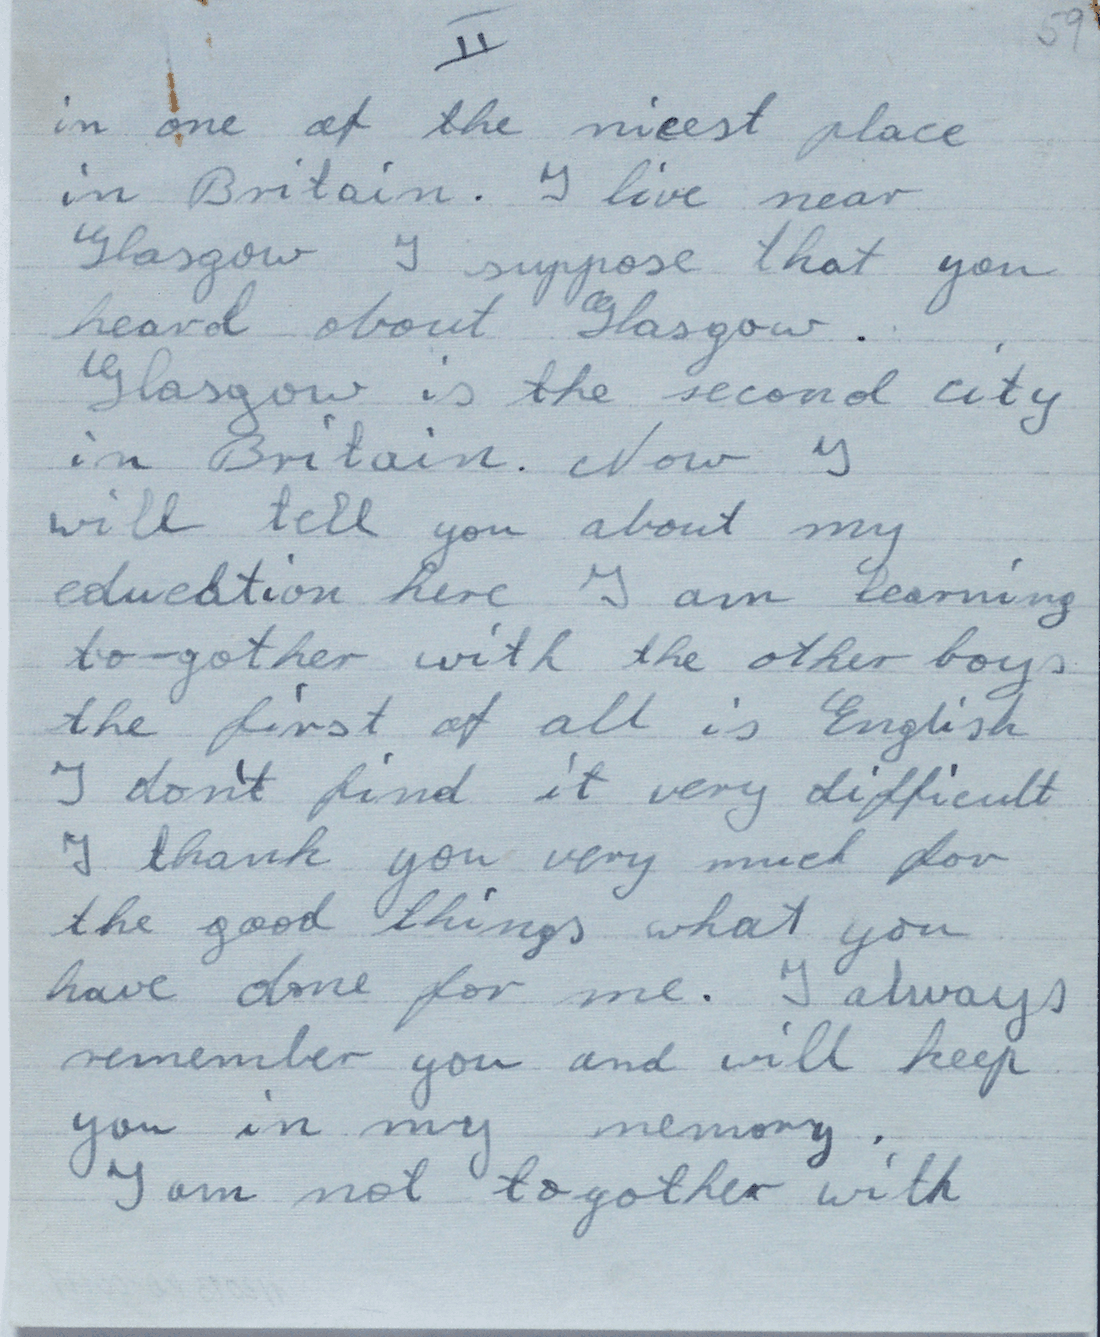 II
59
in one of the nicest place
in Britain. I live near
Glasgow I suppose that you
heard about Glasgow.
Glasgow is the second city
in Britain. Now I
will tell you about my
education here I am learning
to-gother with the other boys
the first of all is English
I don't find it very difficult
I thank you very much for
the good things what you
have done for me. I always
remember you and will keep
you in my memory.
I am not togother with